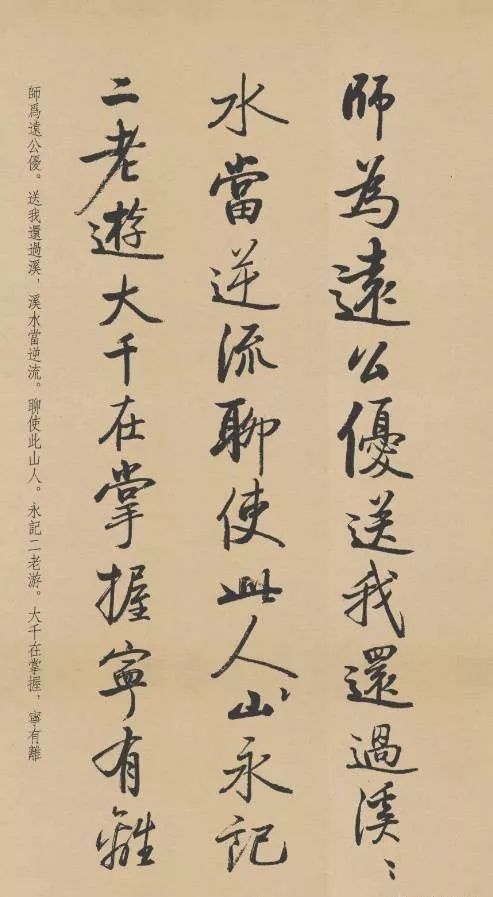 師為遠公優送我還過溪〻
水當逆流聊使此人山永記
二老遊大千在掌握寧有離
師爲遠公優。送我還過溪，溪水當逆流。聊使此山人。永記二老游。大千在掌握，寧有離